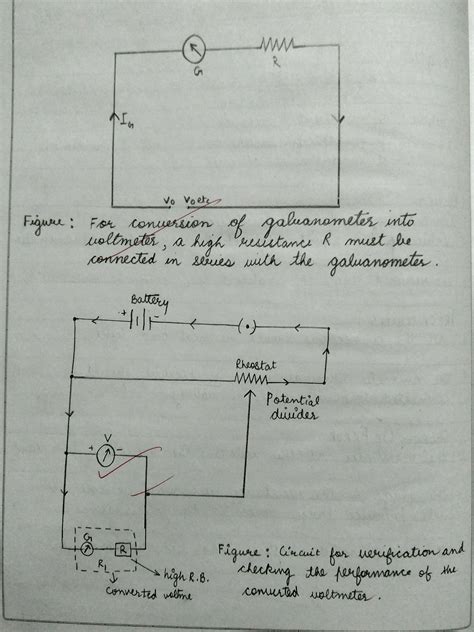 G
R
I_G
V₀ V₀etc
Figure: For conversion of galvanometer into
voltmeter, a high resistance R must be
connected in series with the galvanometer.
Battery
+ -
(•)
Rheostat
Potential
divider
V
+ -
G R
R_L
high R.B.
Converted voltme
Figure: Circuit for verification and
checking the performance of the
converted voltmeter.